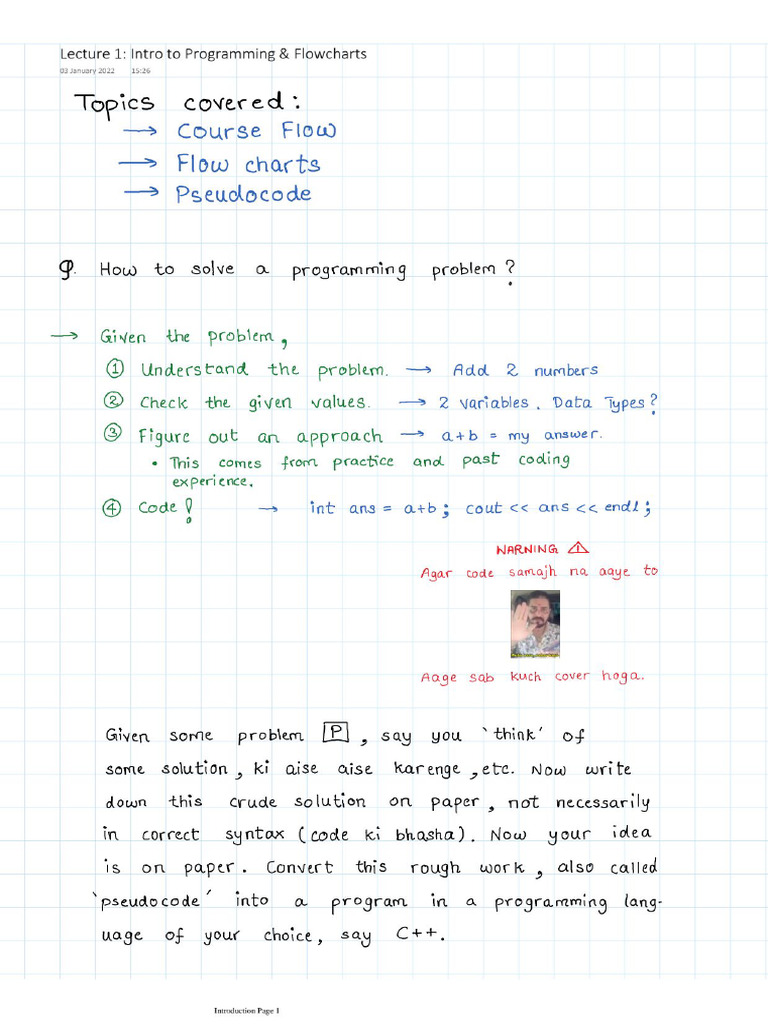 Lecture 1: Intro to Programming & Flowcharts
03 January 2022 15:26
Topics covered:
→ Course Flow
→ Flow charts
→ Pseudocode
Q. How to solve a programming problem?
→ Given the problem,
① Understand the problem. → Add 2 numbers
② Check the given values. → 2 variables. Data Types?
③ Figure out an approach → a+b = my answer.
• This comes from practice and past coding
experience.
④ Code! → int ans = a+b; cout << ans << endl;
WARNING ⚠
Agar code samajh na aaye to
Aage sab kuch cover hoga.
Given some problem P, say you 'think' of
some solution, ki aise aise karenge, etc. Now write
down this crude solution on paper, not necessarily
in correct syntax (code ki bhasha). Now your idea
is on paper. Convert this rough work, also called
'pseudocode' into a program in a programming lang-
uage of your choice, say C++.
Introduction Page 1